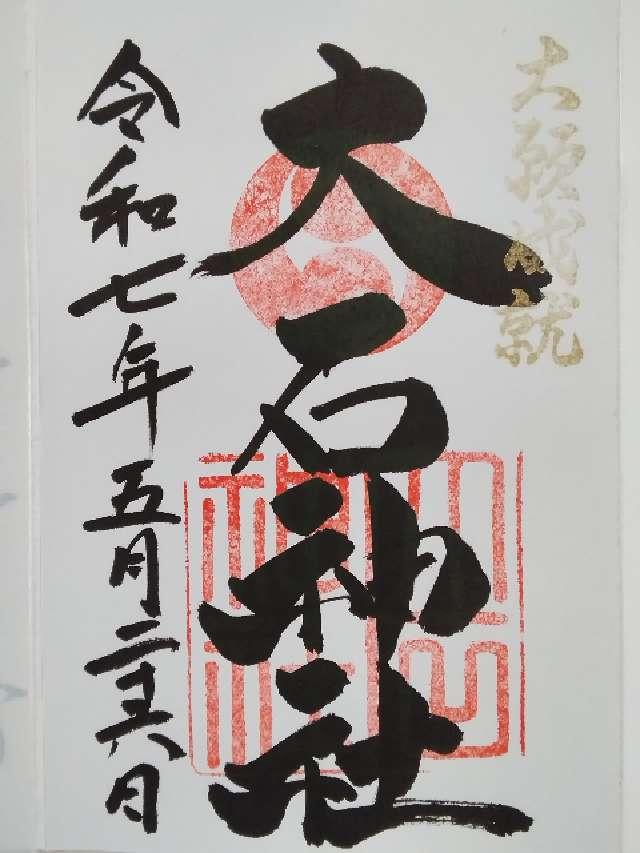 大願成就
大石神社
令和七年五月二十六日